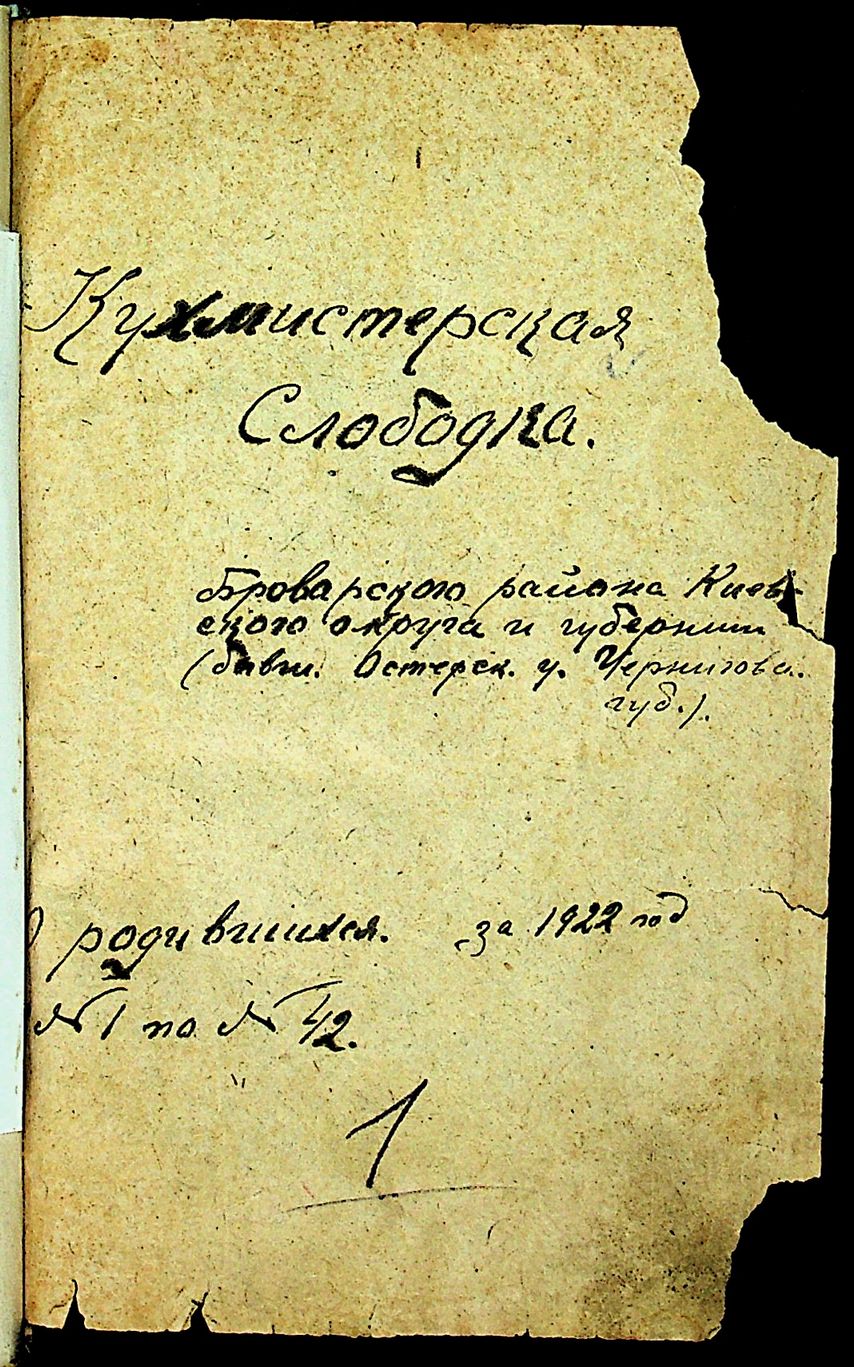 Кухмистерская
Слободка.
Броварского района Киев-
ского округа и губернии
(бывш. Остерск. у. Чернигова.
губ.).
О родившихся. за 1922 год
№1 по №42.
1